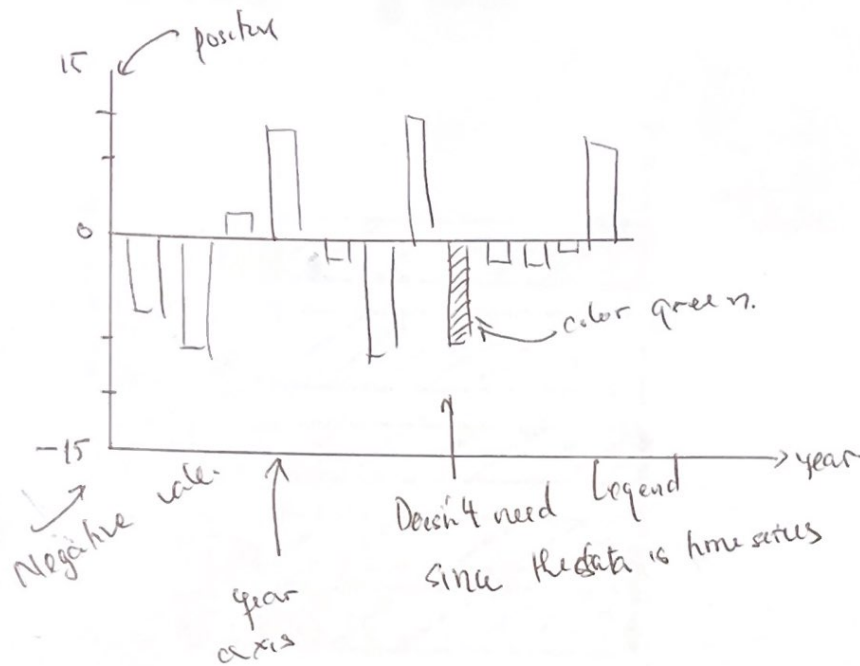 positive
15
0
color green.
-15
year
Negative value.
year
axis
Doesn't need Legend
since the data is time series